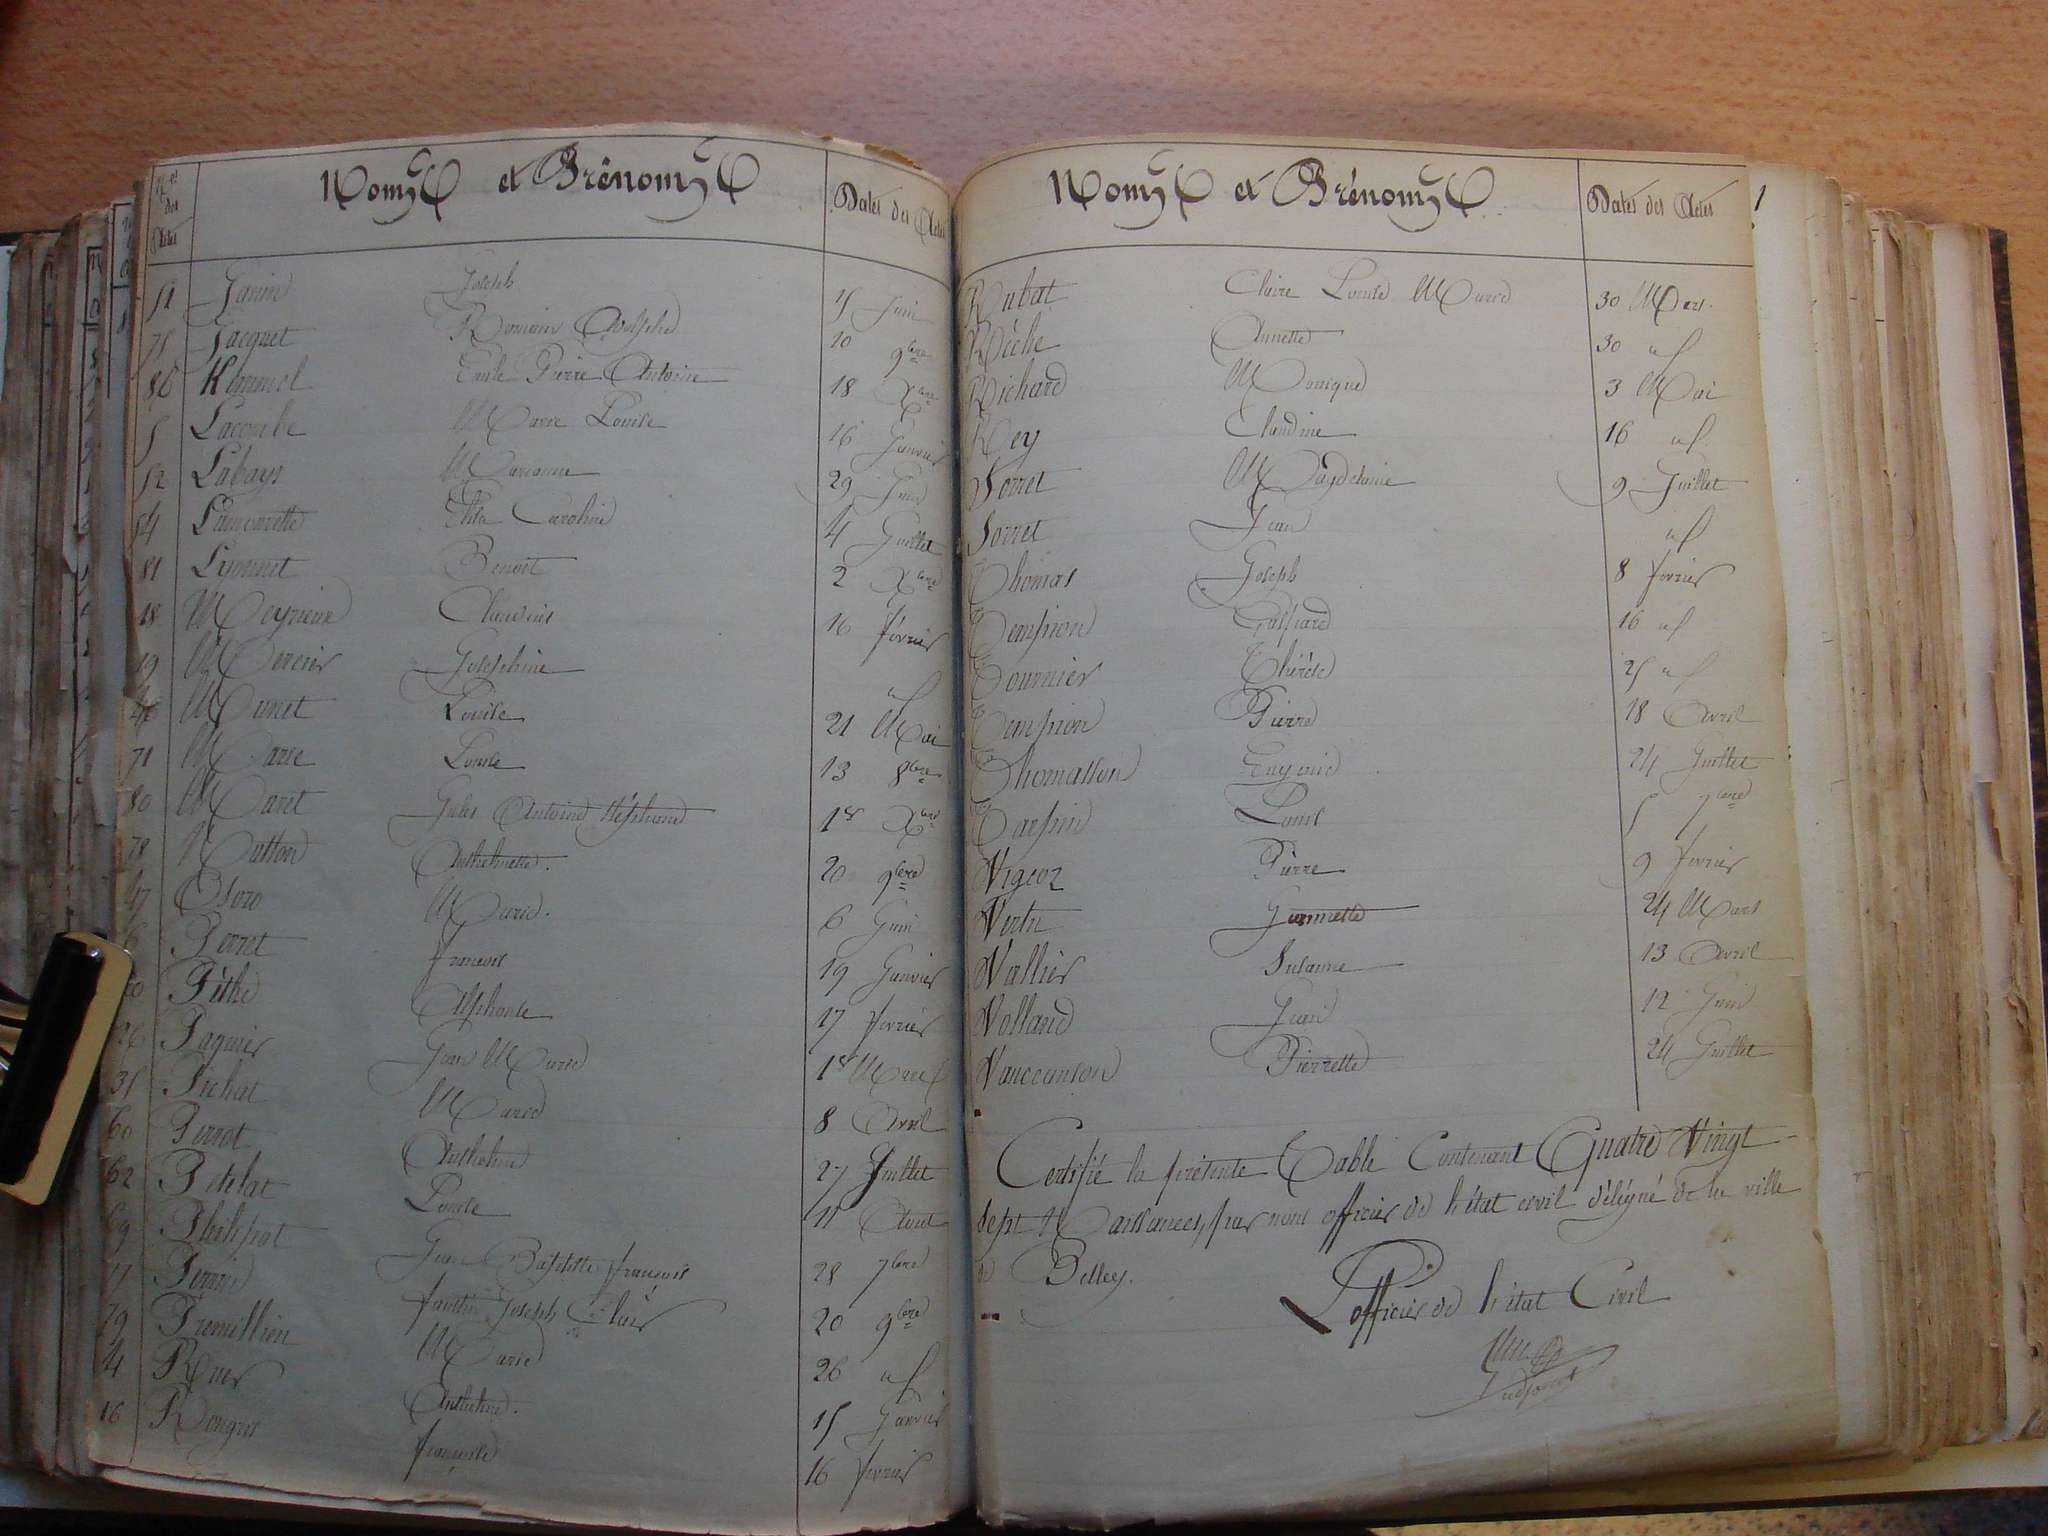 Nos des Actes Noms et Prénoms Dates des Actes
51 Janin Joseph 15 Juin
75 Jacquet Romain Adolphe 10 9bre
86 Kimmel Emile Pierre Antoine 18 Xbre
5 Lacombe Marie Louise 16 Janvier
52 Labays Marianne 29 Juin
54 Lamourette Elisa Caroline 4 Juillet
81 Lyonnet Benoit 2 Xbre
18 Meyrieux Claudius 16 février
19 Mercier Joséphine id
46 Munet Louise 21 Mai
71 Marie Louise 13 8bre
80 Maret Jules Antoine Stéphane 1er Xbre
78 Mutton Anthelmette 20 9bre
47 Osoro Marie 6 Juin
6 Perret francois 19 Janvier
20 Pèthe Alphonse 17 février
26 Paquier Jean Marie 1er Mars
35 Pichat Marie 8 Avril
60 Perrot Anthelme 27 Juillet
62 Pételat Louise 11 Aout
69 Philipot Jean Baptiste françois 28 7bre
77 Perrin faustin Joseph Clair 20 9bre
79 Premillieu Marie 26 id
4 Anthelme 15 Janvier
16 Rougris françoise 16 février
Noms et Prénoms Dates des Actes
Rubat Claire Louise Marie 30 Mars
Rèche Annette 30 id
Richard Monique 3 Mai
Rey Claudine 16 id
Sorret Magdelaine 9 Juillet
Sorret Jean id
Thomas Joseph 8 février
Tempion Gaspard 16 id
Tournier Thérèse 25 id
Tempion Pierre 18 Avril
Thomasson Eugénie 24 Juillet
Tarpin Louis 5 7bre
Vigeoz Pierre 9 février
Vertu Jeannette 24 Mars
Vallier Susanne 13 Avril
Volland Jean 12 Juin
Vauccanson Pierrette 24 Juillet
Certifié la présente Table Contenant Quatre Vingt
sept Naissances, par nous officier de l'état civil délégué de la ville
de Belley.
L'officier de l'état Civil